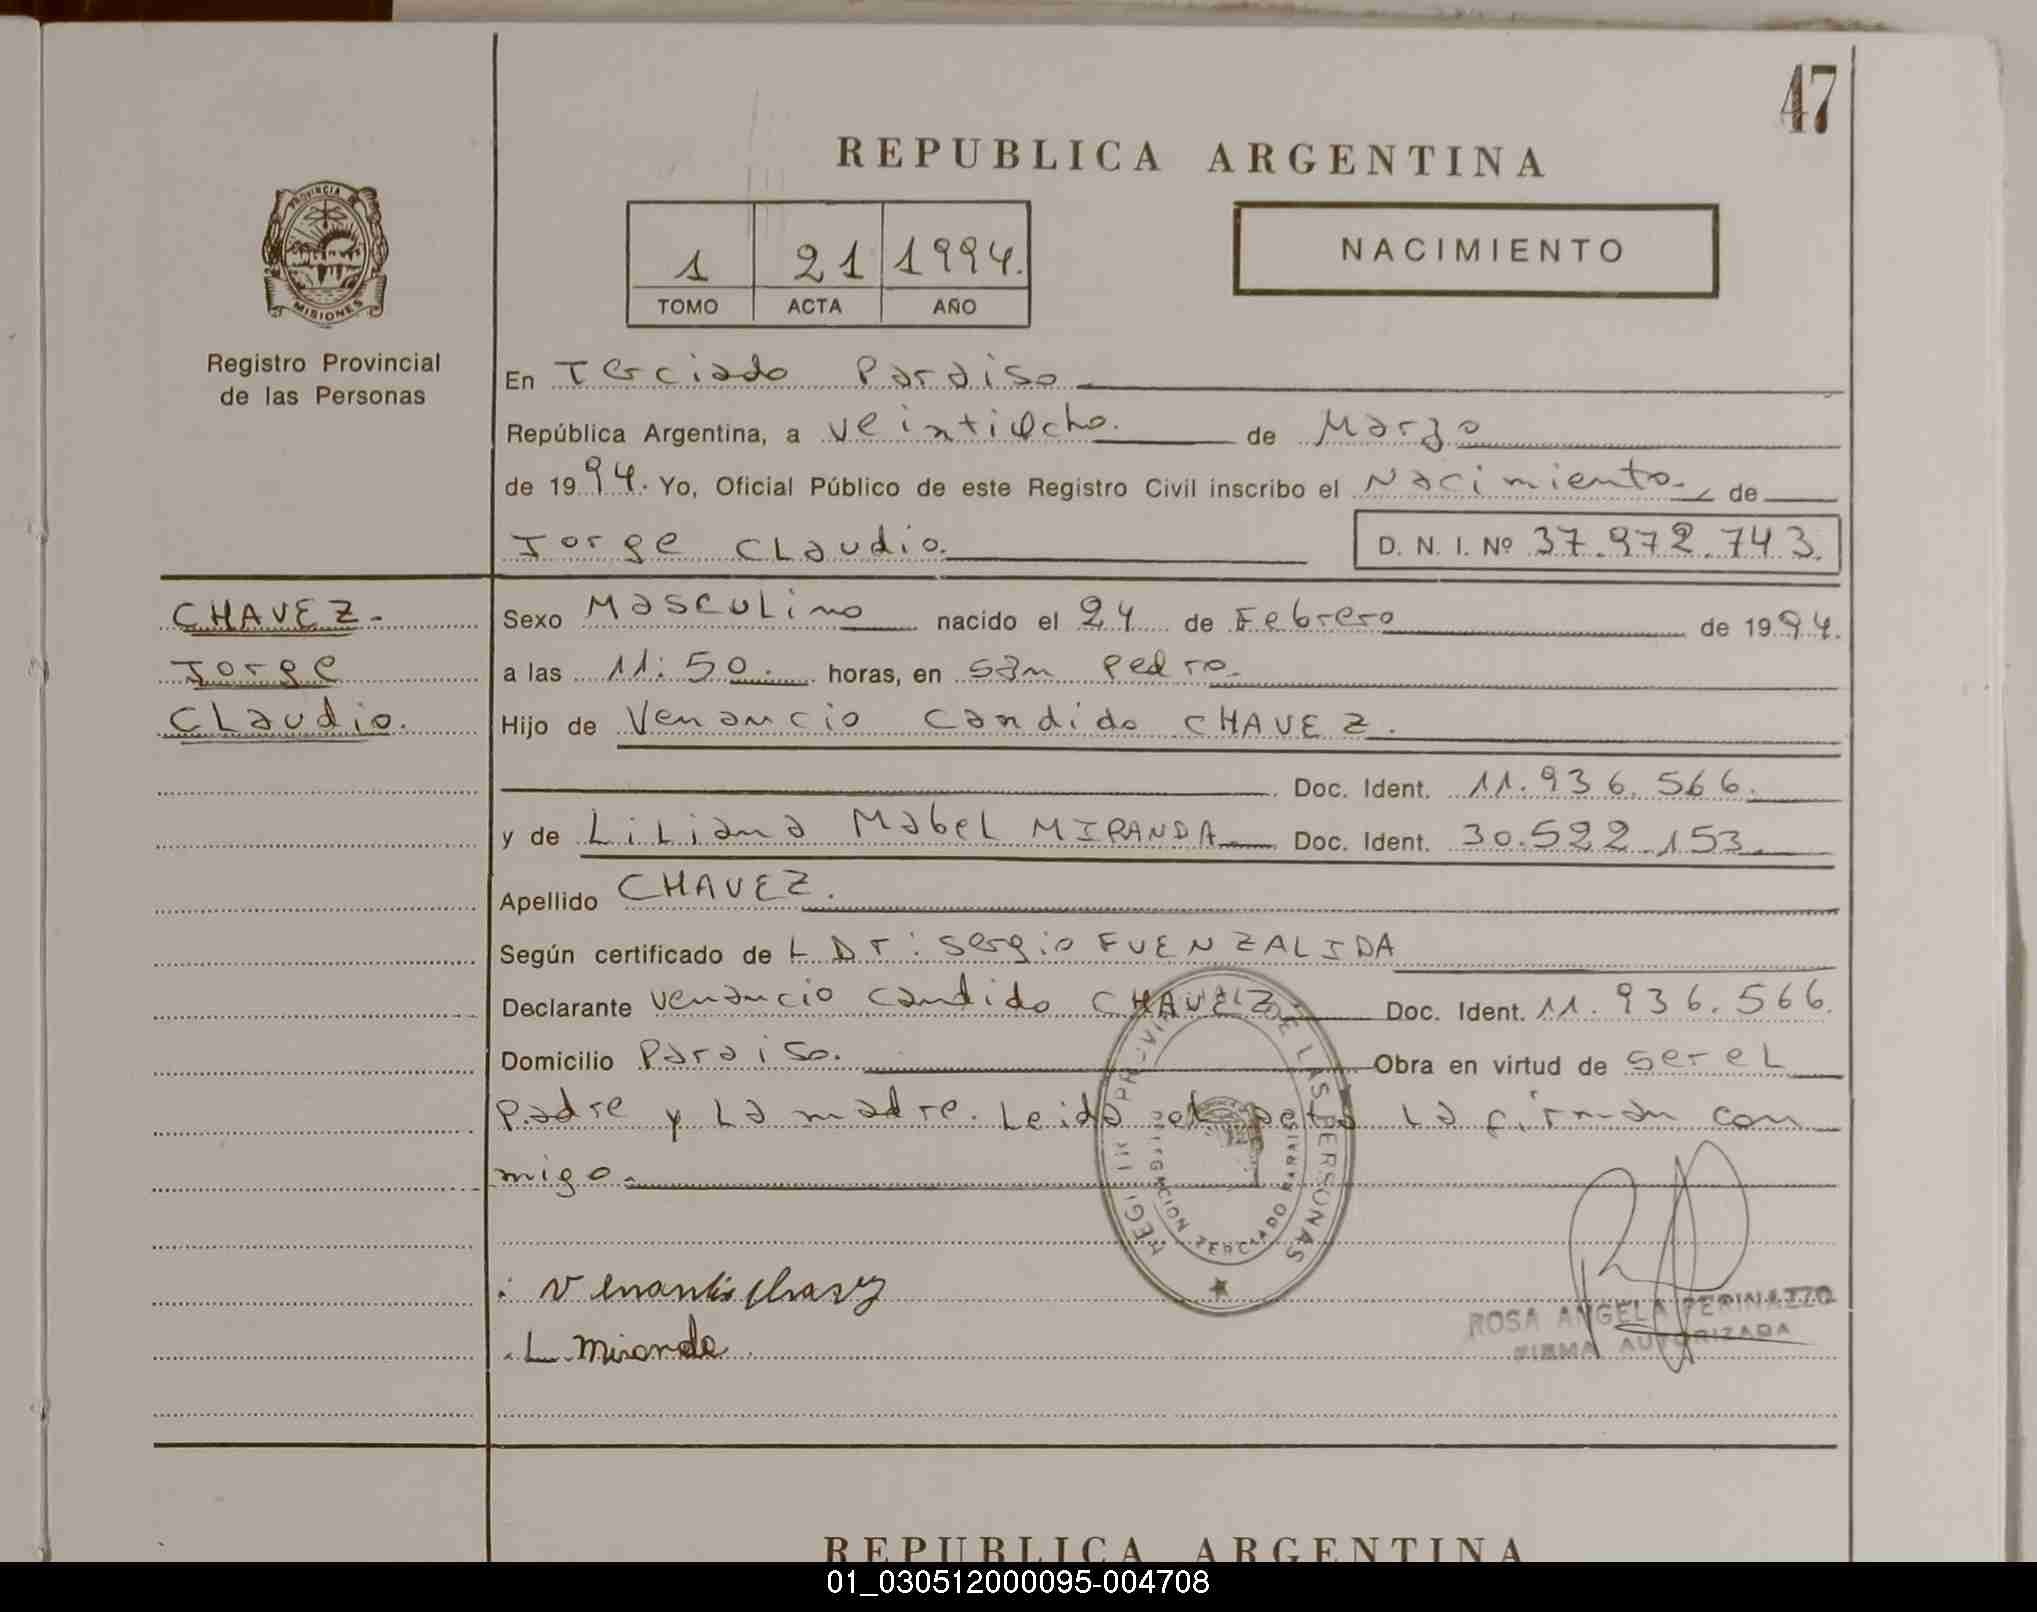 47
REPUBLICA ARGENTINA
PROVINCIA
MISIONES
Registro Provincial
de las Personas
1 21 1994.
TOMO ACTA AÑO
NACIMIENTO
En Terciado Paraiso
República Argentina, a veintiocho. de Marzo
de 1994. Yo, Oficial Público de este Registro Civil inscribo el Nacimiento. de
Jorge Claudio. D. N. I. Nº 37.972.743.
CHAVEZ.
Jorge
Claudio.
Sexo Masculino nacido el 24 de Febrero de 1994.
a las 11:50. horas, en San Pedro.
Hijo de Venancio Candido CHAVEZ.
Doc. Ident. 11.936.566.
y de Liliana Mabel MIRANDA Doc. Ident. 30.522.153.
Apellido CHAVEZ.
Según certificado de L Dr: Sergio FUENZALIDA
Declarante Venancio Candido CHAVEZ Doc. Ident. 11.936.566.
Domicilio Paraiso. Obra en virtud de ser el
Padre y La madre. Leida el acta La firman con
migo.
DE LAS PERSONAS
DELEGACION TERCIADO
L. Miranda
ROSA ANGELA PERINAZZO
FIRMA AUTORIZADA
REPUBLICA ARGENTINA
01_030512000095-004708